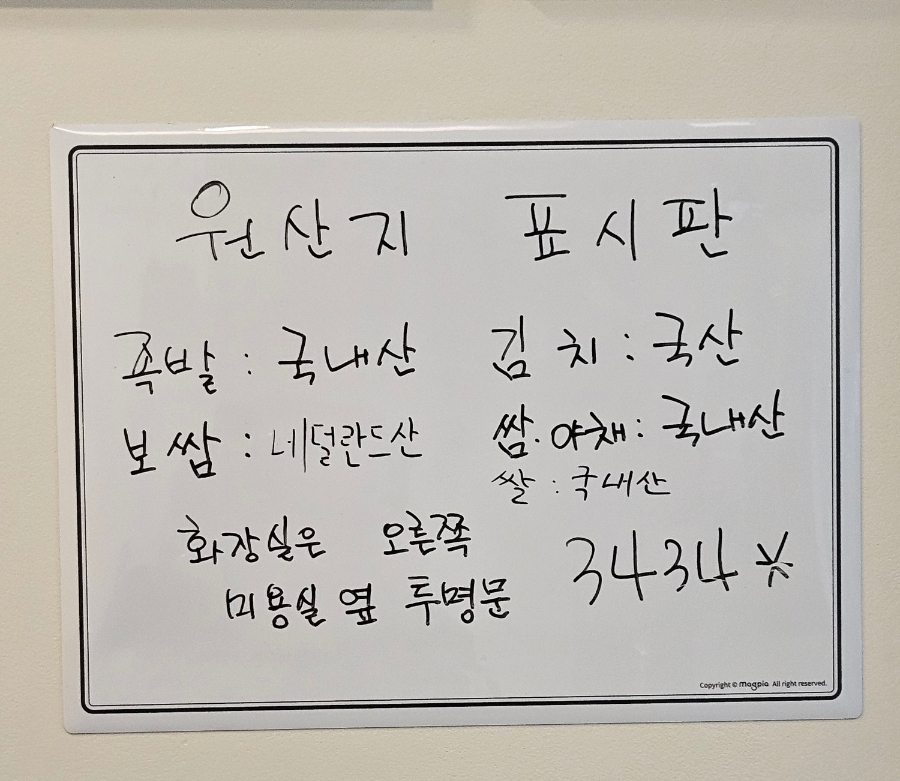 원산지 표시판
족발 : 국내산
보쌈 : 네덜란드산
김치 : 국산
쌈.야채 : 국내산
쌀 : 국내산
화장실은 오른쪽
미용실 옆 투명문
3434*
Copyright © magpia All right reserved.